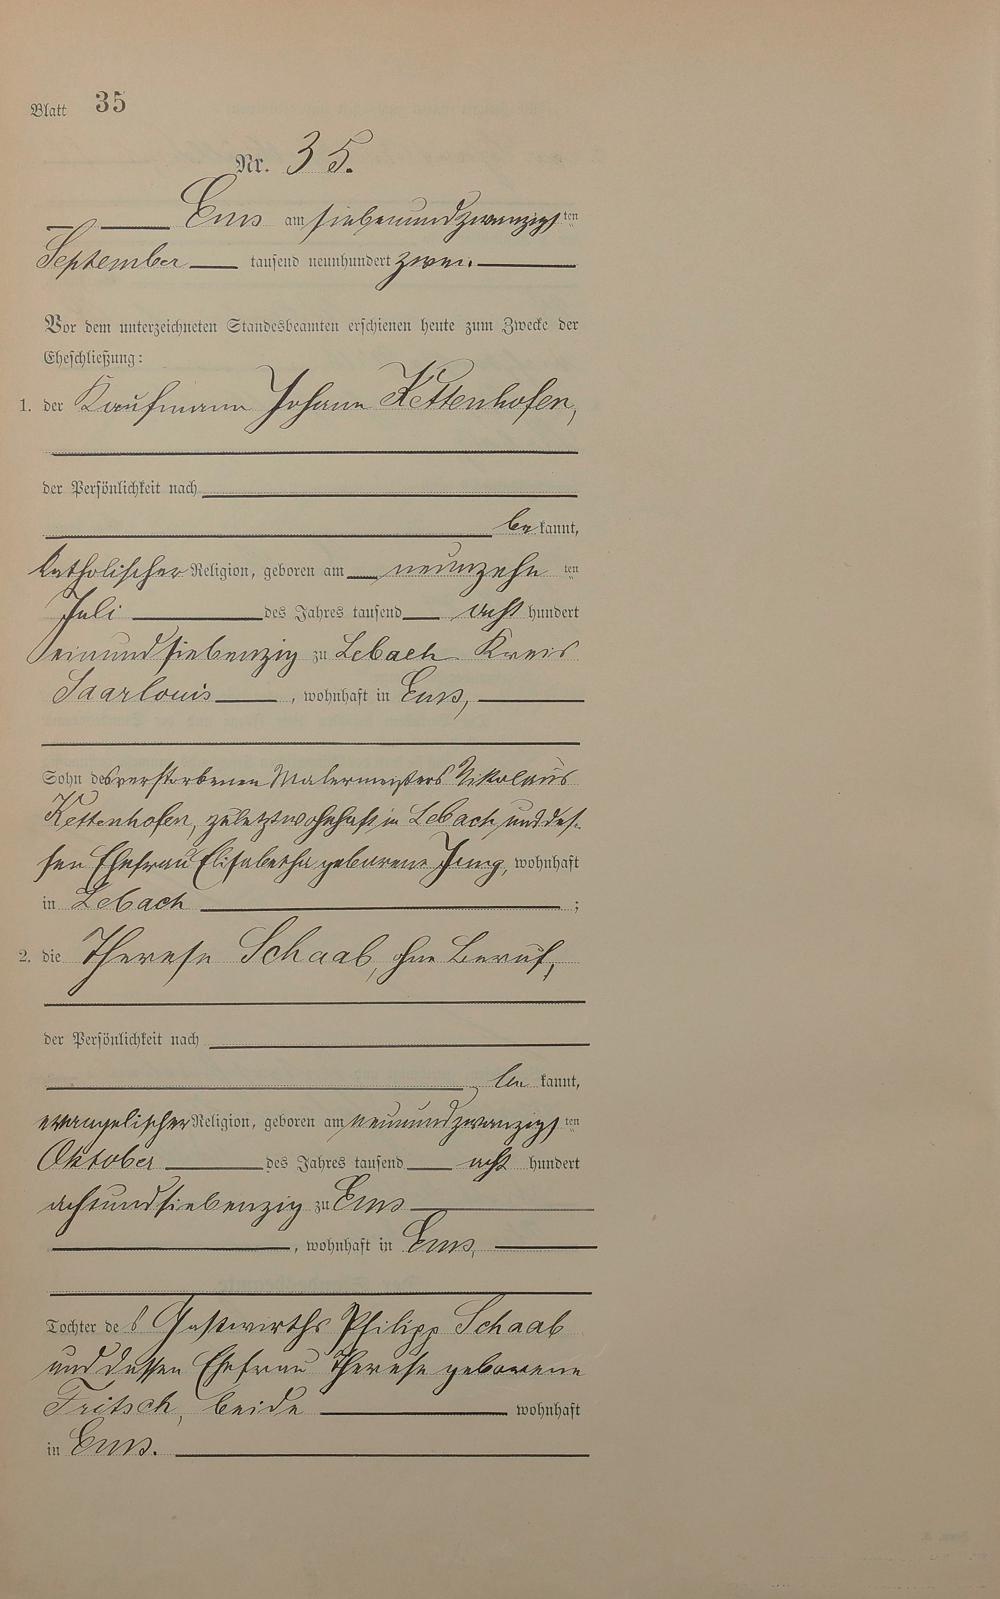 Blatt 35
Nr. 35.
Ems am siebenundzwanzigsten
September tausend neunhundert zwei.
Vor dem unterzeichneten Standesbeamten erschienen heute zum Zwecke der
Eheschließung:
1. der Kaufmann Johann Kettenhofen,
der Persönlichkeit nach
bekannt,
katholischer Religion, geboren am neunzehnten
Juli des Jahres tausend acht hundert
einundsiebenzig zu Lebach Kreis
Saarlouis, wohnhaft in Ems,
Sohn des verstorbenen Malermeisters Nikolaus
Kettenhofen, zuletzt wohnhaft in Lebach, und des-
sen Ehefrau Elisabetha geborene Jung, wohnhaft
in Lebach ;
2. die Therese Schaab, ohne Beruf,
der Persönlichkeit nach
bekannt,
evangelischer Religion, geboren am neunundzwanzigsten
Oktober des Jahres tausend acht hundert
achtundsiebenzig zu Ems
, wohnhaft in Ems,
Tochter des Gastwirths Philipp Schaab
und dessen Ehefrau Therese geborene
Fritsch, beide wohnhaft
in Ems.